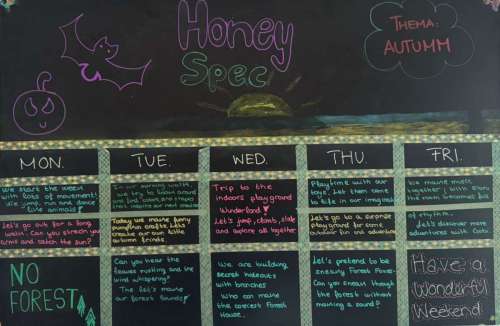 Honey
Spec
THEMA:
AUTUMM
MON.
TUE.
WED.
THU.
FRI.
We start the week
with lots of movement!
We jump, run and dance
like animals!
In our morning walk,
we try to touch
and find colors and shapes
Trip to the
indoors playground
Wunderland!
Let's jump, climb, slide
and explore all together.
Playtime with our
toys. Let them come
to life in our imagination
We make music
together
Let's go out for a long
walk. Can you stretch your
arms and catch the sun?
Today we make funny
pumpkin crafts. Let's
create our own little
autumn friends.
Let's go to a surprise
playground for some
outdoor fun and adventure
of rhythm.
Let's discover more
adventures with
NO
FOREST
Can you hear the
leaves rustling and the
wind whispering?
The let's make
our forest sounds!
We are building
secret hideouts
with branches
Who can make
the coolest Forest
House.
Let's pretend to be
sneaky Forest Foxes.
Can you sneak though
the forest without
making a sound?
Have a
Wonderful
Weekend